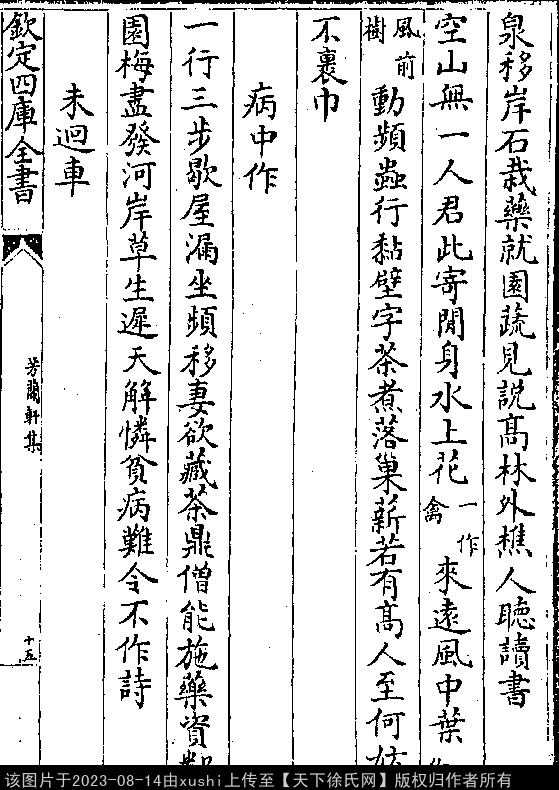 泉移岸石栽藥就園蔬見說髙林外樵人聽讀書
空山無一人君此寄閒身水上花一作禽來遠風中葉
風前樹動頻蟲行黏壁字茶煮落巢薪若有髙人至何
不裹巾
病中作
一行三步歇屋漏坐頻移妻欲藏茶鼎僧能施藥資
園梅盡發河岸草生遲天解憐貧病難令不作詩
未迴車
欽定四庫全書
芳蘭軒集
十五
该图片于2023-08-14由xushi上传至【天下徐氏网】版权归作者所有